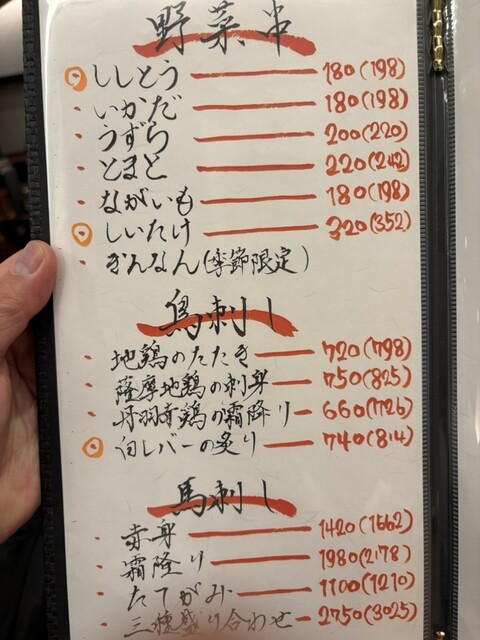 野菜串
ししとう 180(198)
いかだ 180(198)
うずら 200(220)
とまと 220(242)
ながいも 180(198)
しいたけ 320(352)
ぎんなん(季節限定)
鳥刺し
地鶏のたたき 720(798)
薩摩地鶏の刺身 750(825)
丹羽赤鶏の霜降り 660(726)
白レバーの炙り 740(814)
馬刺し
赤身 1420(1562)
霜降り 1980(2178)
たてがみ 1100(1210)
三種盛り合わせ 2750(3025)